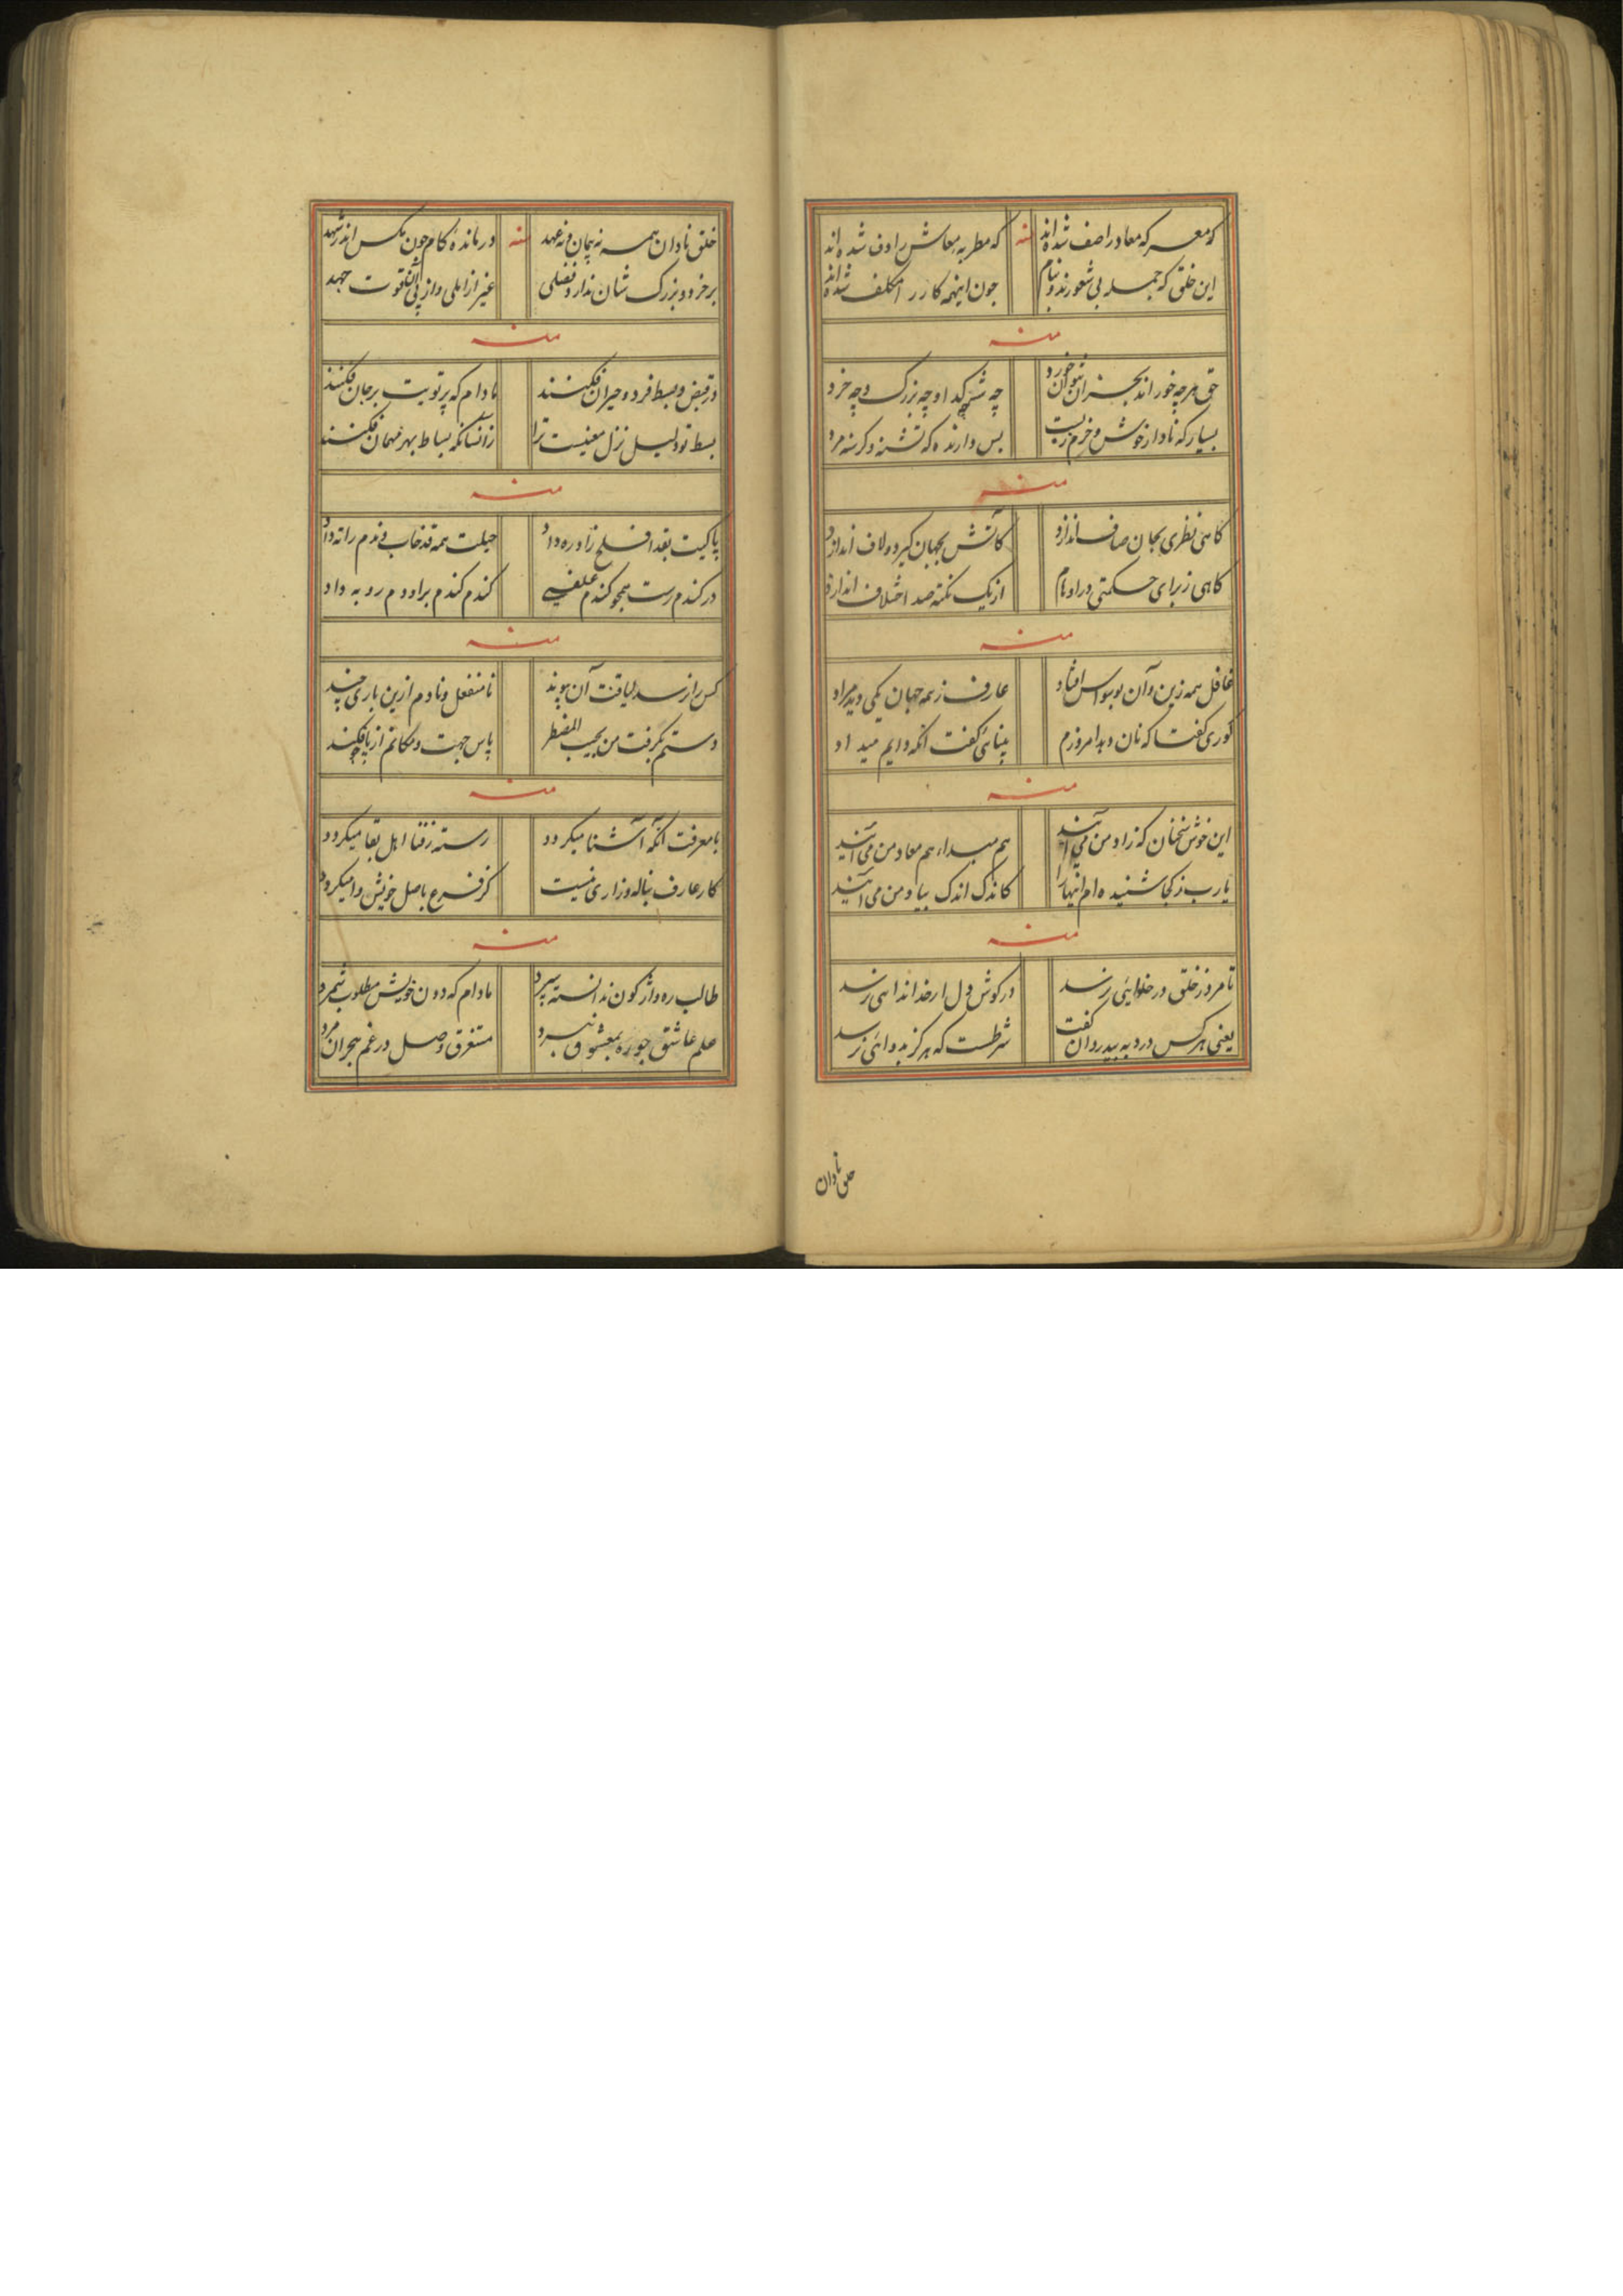 که معرکه معاد را صف شده‌اند منه که مطربه معاش را دف شده‌اند
این خلق که جمله بی شعورند و نیام چون اینهمه کار را مکلف شده‌اند
منه
حق هرچه خوراند بجز آن نتوان خورد چه شه چه گدا و چه بزرگ و چه خرد
بسیار که نادار خوش و خرم زیست بس دارنده که تشنه و گرسنه مرد
منه
گاهی نظری بجان صاف اندازد کاتش بجهان گیرد و لاف اندازد
گاهی ز برای حکمتی در اوهام از یک نکته صد اختلاف اندازد
منه
غافل همه زین و آن بوسواس افتاد عارف ز همه جهان یکی دید مراد
کوری گفتا که نان و بد امروزم بینائی گفت آنکه دایم میداد
منه
این خوش سخنان که زاد من می‌آیند هم مبداء هم معاد من می‌آیند
یارب ز کجا شنیده‌ام اینها را کاندک اندک بیاد من می‌آیند
منه
تا مرد ز خلق در خلائی نرسد در گوش دل از خدا ندائی نرسد
یعنی هرکس درد به بیدردان گفت شرطست که هرگز بدوائی نرسد
خلق نادان
خلق نادان همه نه پیمان و نه عهد منه درمانده کام چون مگس اندر شهد
بر خرد و بزرگ شان ندارد فضلی غیر از املی و از پی آن قوت جهد
منه
در قبض و بسط فرد و حیران فکنند مادام که پرتویت بر جان فکنند
بسط تو دلیل نزل معنیست ترا زآنسانکه بساط بهر مهمان فکنند
منه
پاکیت بقد افلح زاد ره داد حیلت همه قد خاب و ندم را ته داد
در گندم رست همچو گندم علفی گندم گندم بر او دم رو به داد
منه
کس را نرسد لیاقت آن پیوند نا منفعل و نادم ازین باری چند
دستم بگرفت من یجیب المضطر پاس جهت و مکانم از پا فکند
منه
با معرفت آنکه آشنا میگردد رسته ز فنا اهل بقا میگردد
کار عارف بناله و زاری نیست کز فرع باصل خویش وا میگردد
منه
طالب ره واژگون ندانسته سپرد مادام که دون خویش مطلوب شمرد
علم عاشق چو ره بمعشوق نبرد مستغرق وصل در غم هجران مرد